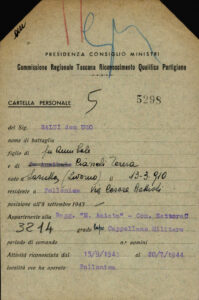 PRESIDENZA CONSIGLIO MINISTRI
Commissione Regionale Toscana Riconoscimento Qualifica Partigiano
CARTELLA PERSONALE 5 5298
del Sig. BALDI don UGO
nome di battaglia
figlio di fu Annibale
e di Teresa
nato a (Livorno) il 13-3-910
residente a Follonica Via Cesare Battisti
posizione all'8 settembre 1943
Appartenente alla Ragg.
3214 grado Cappellano Militare
periodo di comando uomini
Attività riconosciuta dal 13/9/1943 al 20/7/1944
località ove ha operato Follonica